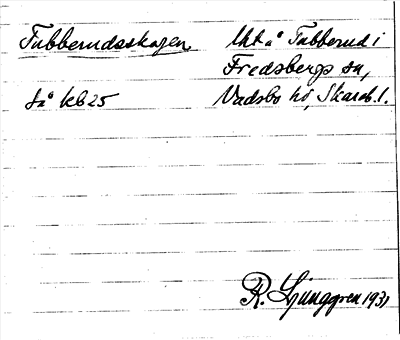 Tubberudsskogen
Utt å Tubberud i
Fredsbergs sn,
så kb 25
Vadsbo hd, Skarab. l.
R. Ljunggren 1931